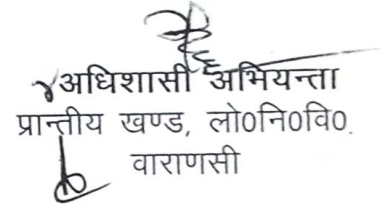 अधिशासी अभियन्ता
प्रान्तीय खण्ड, लो0नि0वि0.
वाराणसी